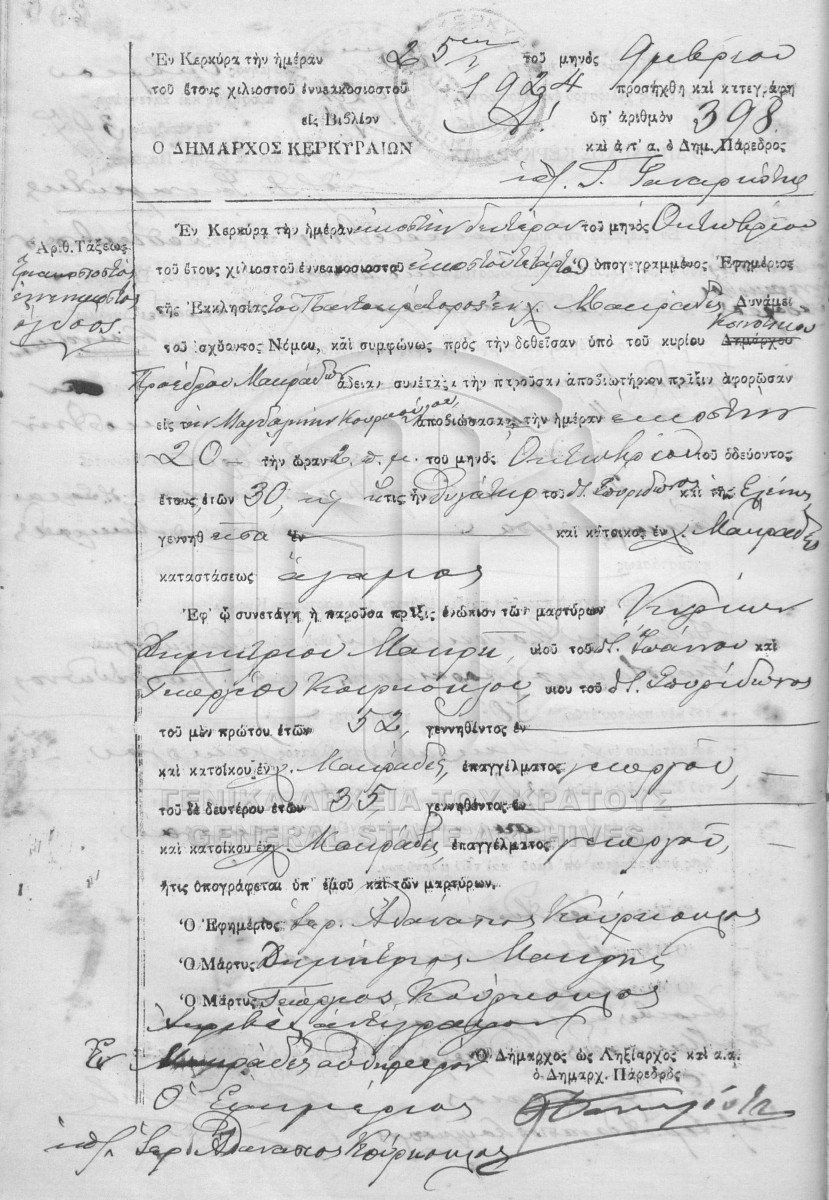 Ἐν Κερκύρα τὴν ἡμέραν 25ην τοῦ μηνὸς 9μβρίου
τοῦ ἔτους χιλιοστοῦ ἐννεακοσιοστοῦ 1924 προσήχθη καὶ κατεγράφη
εἰς Βιβλίον Α! ὑπ' ἀριθμὸν 398
Ο ΔΗΜΑΡΧΟΣ ΚΕΡΚΥΡΑΙΩΝ καὶ ἀντ' α. ὁ Δημ. Πάρεδρος
Γ.
Ἐν Κερκύρα τὴν ἡμέραν εἰκοστὴν δευτέραν τοῦ μηνὸς Ὀκτωβρίου
Ἀριθ. Τάξεως
τοῦ ἔτους χιλιοστοῦ ἐννεακοσιοστοῦ εἰκοστοῦ τετάρτου Ὁ ὑπογεγραμμένος Ἐφημέριος
Τριακοσιοστὸς
ἐννενηκοστὸς
ὄγδοος.
τῆς Ἐκκλησίας τοῦ Παντοκράτορος ἐν χ. Μακράδες Δυνάμει
τοῦ ἰσχύοντος Νόμου, καὶ συμφώνως πρὸς τὴν δοθεῖσαν ὑπὸ τοῦ κυρίου Δημάρχου Κοινοτικοῦ
Προέδρου Μακράδων ἄδειαν συνέταξα τὴν παροῦσαν ἀποβιωτήριον πρᾶξιν ἀφορῶσαν
εἰς τὴν Μαγδαληνὴν Κουρκούλου, ἀποβιώσασαν τὴν ἡμέραν εἰκοστὴν
20 τὴν ὥραν 2 π.μ. τοῦ μηνὸς Ὀκτωβρίου τοῦ ὁδεύοντος
ἔτους, ἐτῶν 30, ἥτις ἦν θυγάτηρ τοῦ Σπυρίδωνος καὶ τῆς Ἑλένης
γεννηθεῖσα ἐν καὶ κάτοικος ἐν χ. Μακράδες
καταστάσεως ἄγαμος
Ἐφ' ᾧ συνετάγη ἡ παροῦσα πρᾶξις ἐνώπιον τῶν μαρτύρων Κυρίων
Δημητρίου Μακρῆ, υἱοῦ τοῦ Ἰωάννου καὶ
Γεωργίου Κουρκούλου, υἱοῦ τοῦ Σπυρίδωνος
τοῦ μὲν πρώτου ἐτῶν 52, γεννηθέντος ἐν
καὶ κατοίκου ἐν χ. Μακράδες, ἐπαγγέλματος γεωργοῦ,
ΓΕΝΙΚΑ ΑΡΧΕΙΑ ΤΟΥ ΚΡΑΤΟΥΣ
τοῦ δὲ δευτέρου ἐτῶν 35 γεννηθέντος ἐν
GENERAL STATE ARCHIVES
καὶ κατοίκου ἐν χ. Μακράδες, ἐπαγγέλματος γεωργοῦ,
ἥτις ὑπογράφεται ὑπ' ἐμοῦ καὶ τῶν μαρτύρων.
Ὁ Ἐφημέριος Ἱερ. Ἀθανάσιος Κούρκουλος
Ὁ Μάρτυς Δημήτριος Μακρῆς
Ὁ Μάρτυς Γεώργιος Κούρκουλος
Ἀκριβὲς ἀντίγραφον
Ἐν Μακράδες αὐθημερόν
Ὁ Δήμαρχος ὡς Ληξίαρχος καὶ α.α.
ὁ Δημαρχ. Πάρεδρὸς
Ὁ Ἐφημέριος
Ἱερ. Ἀθανάσιος Κούρκουλος